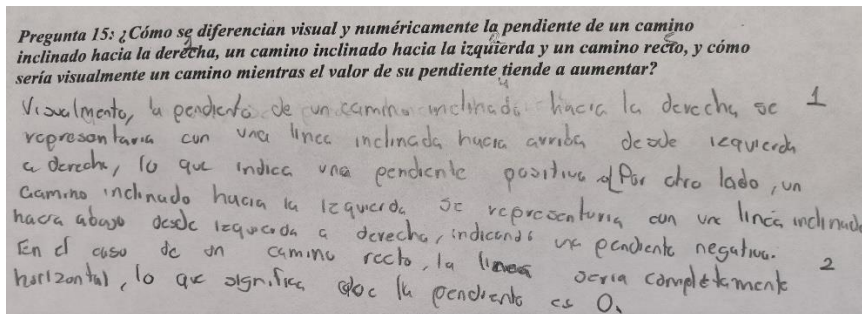 Pregunta 15: ¿Cómo se diferencian visual y numéricamente la pendiente de un camino
inclinado hacia la derecha, un camino inclinado hacia la izquierda y un camino recto, y cómo
sería visualmente un camino mientras el valor de su pendiente tiende a aumentar?
Visualmente, la pendiente de un camino inclinado hacia la derecha se 1
representaria con una linea inclinada hacia arriba desde izquierda
a derecha, lo que indica una pendiente positiva Por otro lado, un
camino inclinado hacia la izquierda se representaria con una linea inclinada
hacia abajo desde izquierda a derecha, indicando una pendiente negativa.
En el caso de un camino recto, la linea seria completamente 2
horizontal, lo que significa que la pendiente es 0.